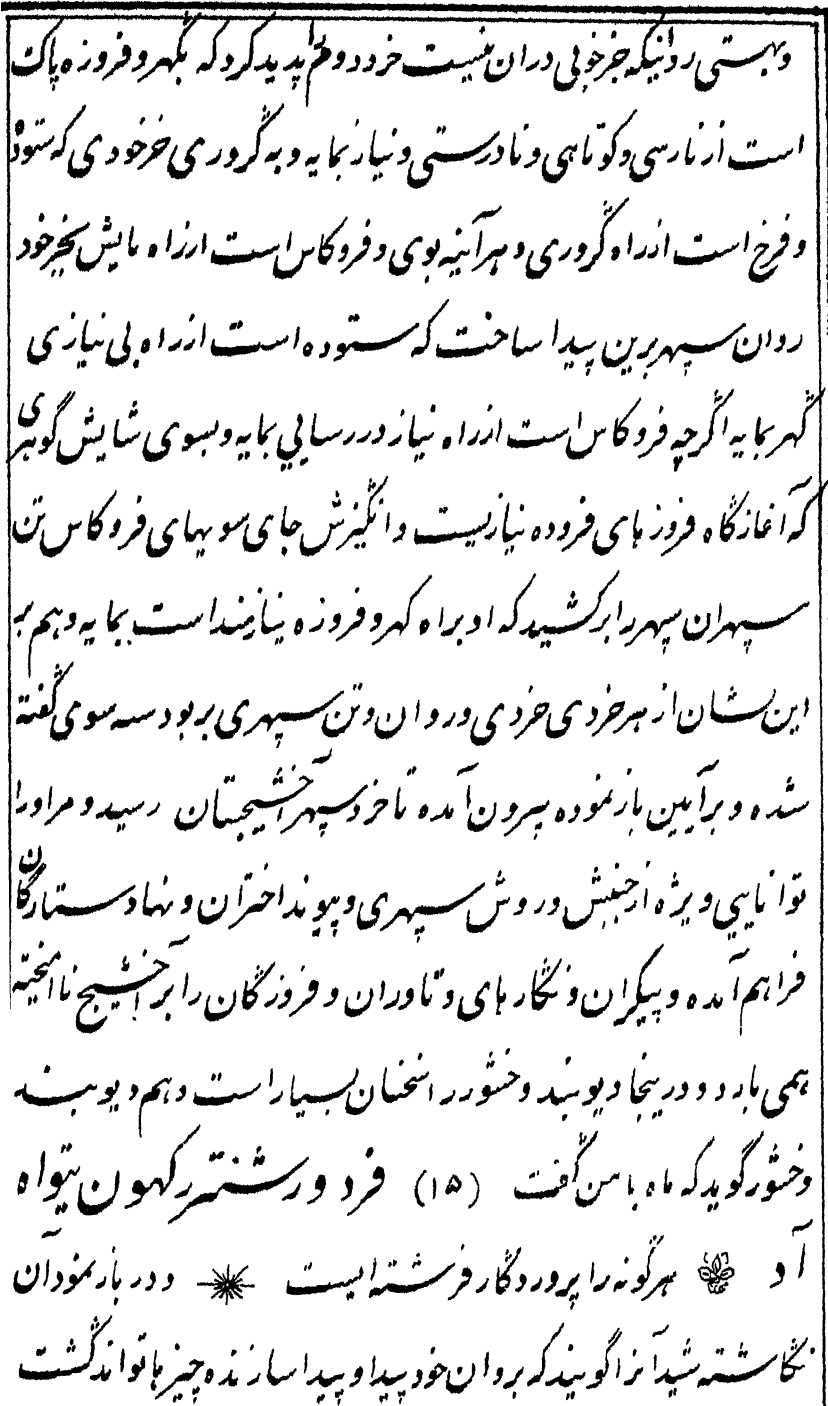 و بهستی روانیکه جز خوبی دران نیست خرد دوم پدید کرد که بگهر و فروزه پاک
است از نارسی و کوتاهی و نادرستی و نیاز بمایه و به گروری خرخودی که ستوده
و فرخ است از راه گروری و هر آئینه بوی و فروکاس است از راه بایش بخیر خود
روان سپهر برین پیدا ساخت که ستوده است از راه بی نیازی
گهر بمایه اگرچه فروکاس است از راه نیاز در رسایی بمایه و بسوی شایش گوهری
که آغازگاه فروزهای فروده نیازیست و انگیزش جای سویهای فروکاس تن
سپهران سپهر را بر کشید که او براه گهر و فروزه نیازمند است بمایه و هم بر
این نشان از هر خردی خردی و روان و تن سپهری بر بود سه سوی گفته
شده و بر آیین باز نموده بیرون آمده تا خرد سپهر آخشیجستان رسید و مر او را
توانایی ویژه از جنبش و روش سپهری و پیوند اختران و نهاد ستارگان
فراهم آمده و پیکران و نگارهای و تاوران و فروزگان را بر آخشیج نا آمیخته
همی بارد و درینجا دیوبند وخشور را سخنان بسیار است و هم دیوبند
وخشور گوید که ماه با من گفت (۱۵) فرد ورشنتر رکهون یتواه
آد هرگونه را پروردگار فرشته ایست و در باز نمود آن
نگاشته شید آنرا گویند که بروان خود پیدا و پیدا سازنده چیزها تواند گشت